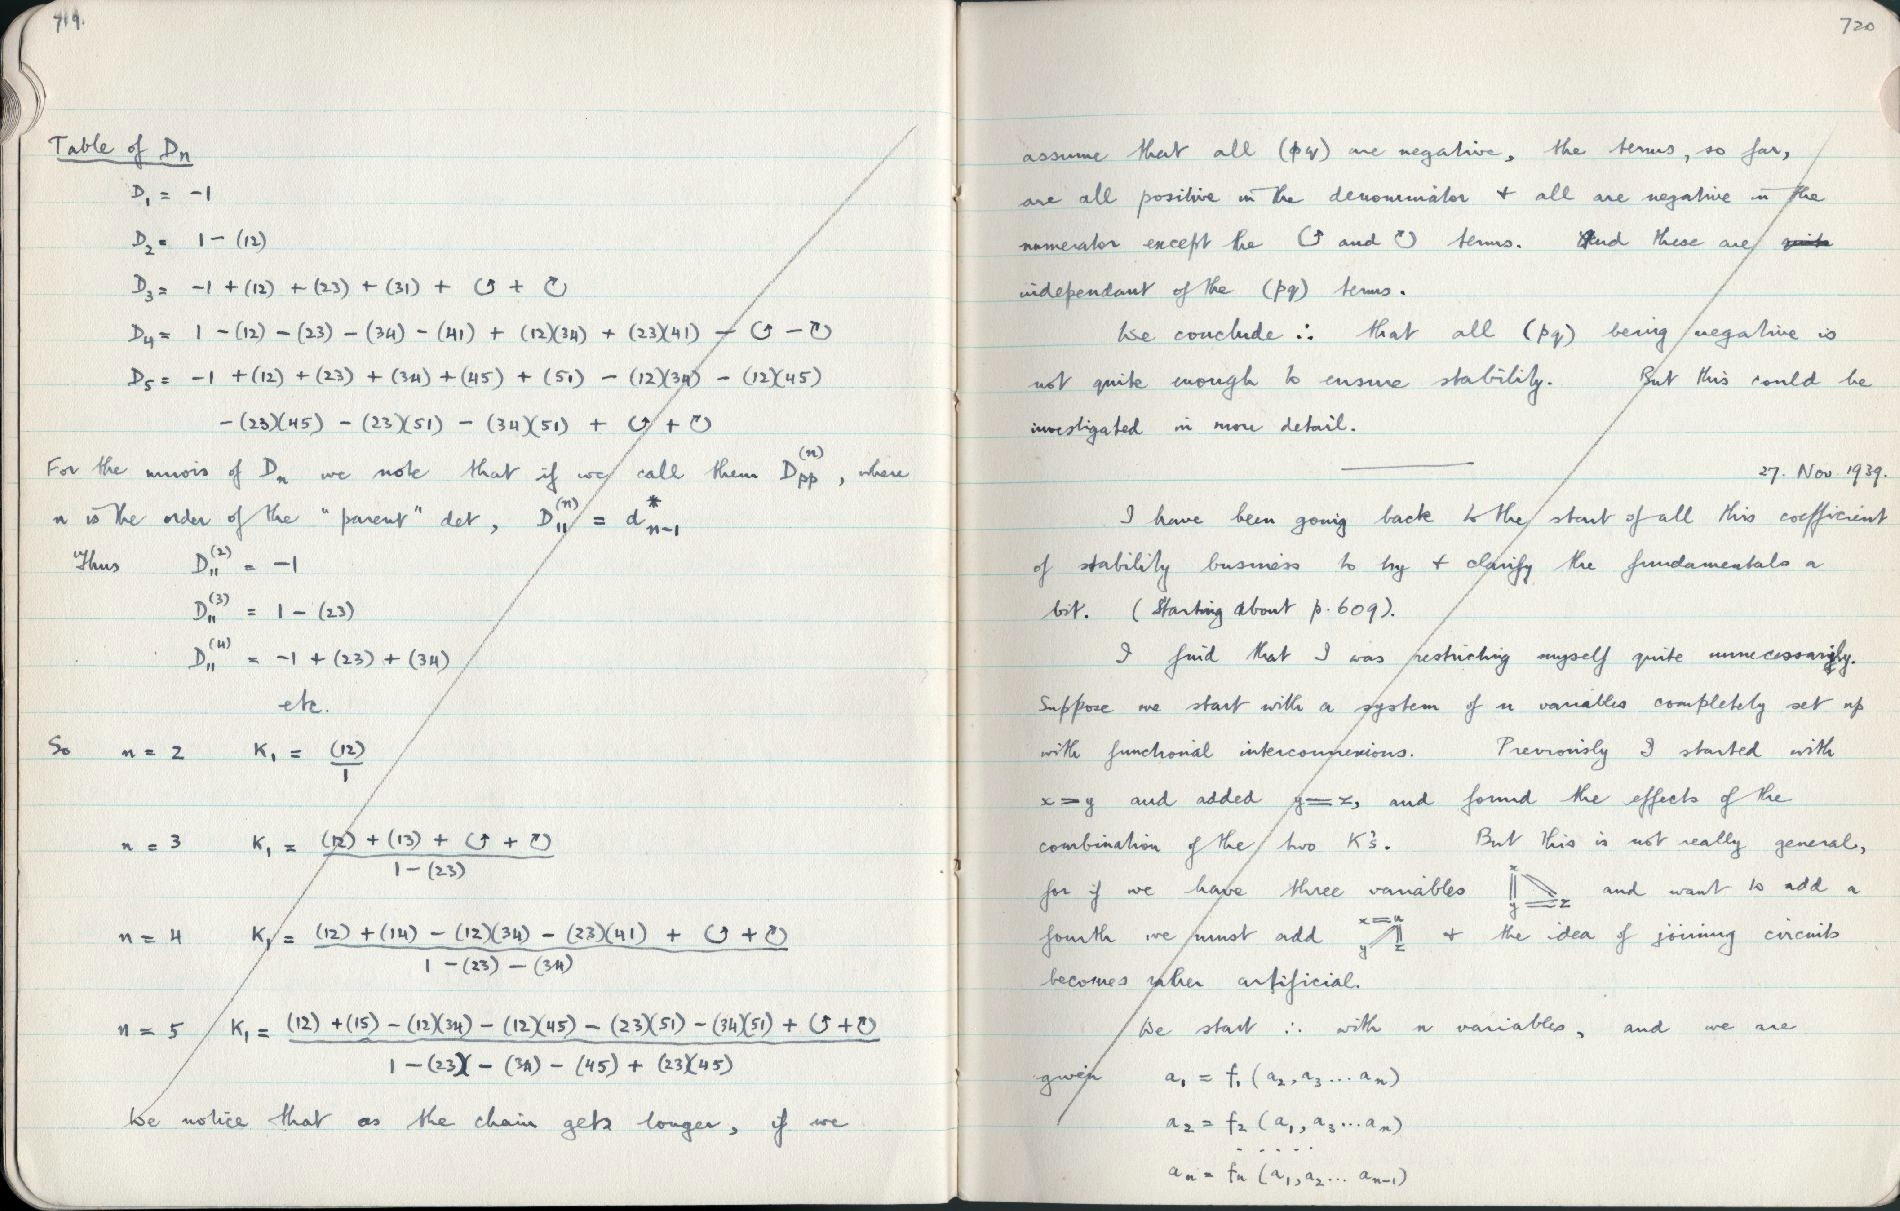 719.
Table of Dn
D₁ = -1
D₂ = 1 - (12)
D₃ = -1 + (12) + (23) + (31) + ↺ + ↻
D₄ = 1 - (12) - (23) - (34) - (41) + (12)(34) + (23)(41) - ↺ - ↻
D₅ = -1 + (12) + (23) + (34) + (45) + (51) - (12)(34) - (12)(45)
- (23)(45) - (23)(51) - (34)(51) + ↺ + ↻
For the minors of Dn we note that if we call them Dpp⁽ⁿ⁾, where
n is the order of the "parent" det, D₁₁⁽ⁿ⁾ = d*n-1
Thus D₁₁⁽²⁾ = -1
D₁₁⁽³⁾ = 1 - (23)
D₁₁⁽⁴⁾ = -1 + (23) + (34)
etc.
So n = 2 K₁ = (12)
1
n = 3 K₁ = (12) + (13) + ↺ + ↻
1 - (23)
n = 4 K₁ = (12) + (14) - (12)(34) - (23)(41) + ↺ + ↻
1 - (23) - (34)
n = 5 K₁ = (12) + (15) - (12)(34) - (12)(45) - (23)(51) - (34)(51) + ↺ + ↻
1 - (23) - (34) - (45) + (23)(45)
We notice that as the chain gets longer, if we
720
assume that all (pq) are negative, the terms, so far,
are all positive in the denominator + all are negative in the
numerator except the ↺ and ↻ terms. And these are quite
independant of the (pq) terms.
We conclude ∴ that all (pq) being negative is
not quite enough to ensure stability. But this could be
investigated in more detail.
27. Nov 1939.
I have been going back to the start of all this coefficient
of stability business to try + clarify the fundamentals a
bit. (Starting about p. 609).
I find that I was restricting myself quite unnecessarily.
Suppose we start with a system of n variables completely set up
with functional interconnexions. Previously I started with
x = y and added y = z, and found the effects of the
combination of the two K's. But this is not really general,
for if we have three variables x y z and want to add a
fourth we must add x = u y z + the idea of joining circuits
becomes rather artificial.
We start ∴ with n variables, and we are
given a₁ = f₁ (a₂, a₃ ... an)
a₂ = f₂ (a₁, a₃ ... an)
. . . . .
an = fn (a₁, a₂ ... an-1)